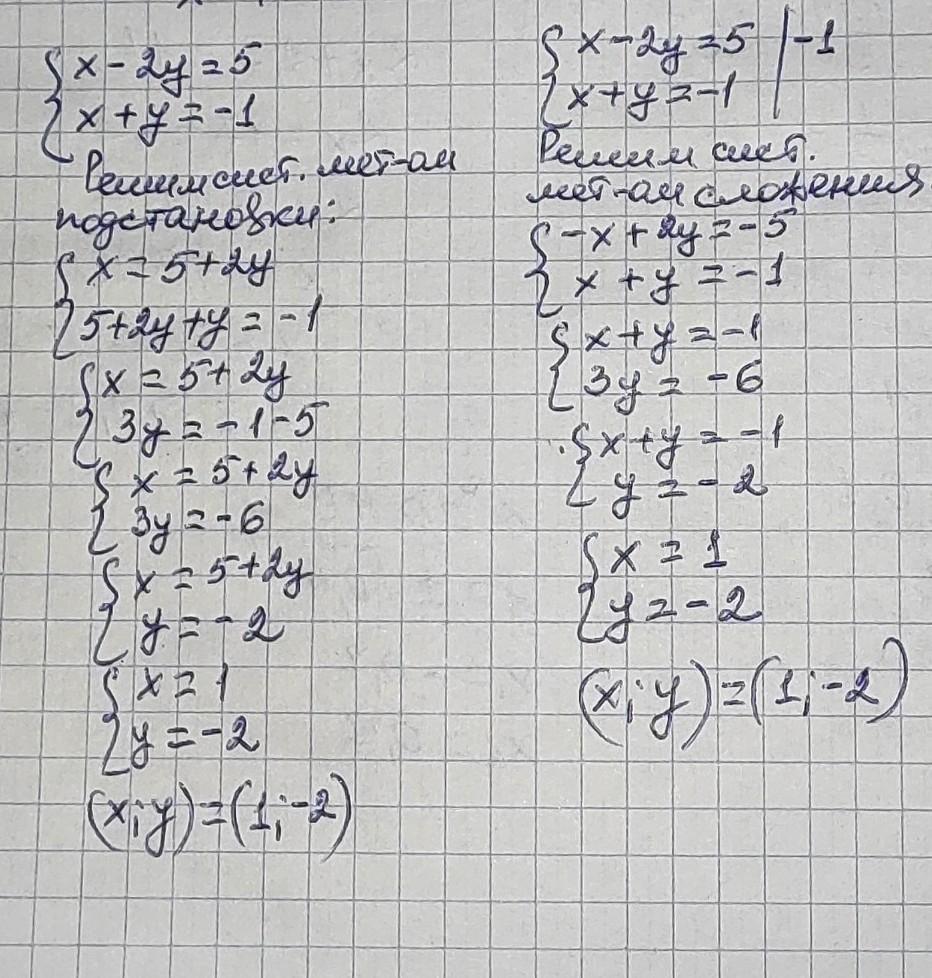 x - 2y = 5
x + y = -1
Решим сист. мет-ом
подстановки:
x = 5 + 2y
5 + 2y + y = -1
x = 5 + 2y
3y = -1 - 5
x = 5 + 2y
3y = -6
x = 5 + 2y
y = -2
x = 1
y = -2
(x; y) = (1; -2)
x - 2y = 5 | -1
x + y = -1
Решим сист.
мет-ом сложения
-x + 2y = -5
x + y = -1
x + y = -1
3y = -6
x + y = -1
y = -2
x = 1
y = -2
(x; y) = (1; -2)